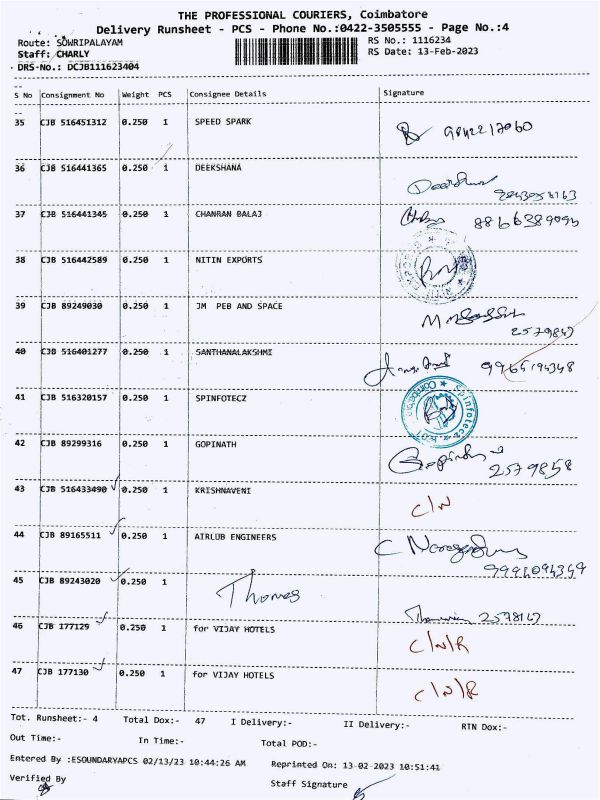 THE PROFESSIONAL COURIERS, Coimbatore
Delivery Runsheet - PCS - Phone No.:0422-3505555 - Page No.:4
Route: SOWRIPALAYAM RS No.: 1116234
Staff: CHARLY RS Date: 13-Feb-2023
DRS-No.: DCJB111623404
S No Consignment No Weight PCS Consignee Details Signature
35 CJB 516451312 0.250 1 SPEED SPARK
36 CJB 516441365 0.250 1 DEEKSHANA
37 CJB 516441345 0.250 1 CHANRAN BALAJ
38 CJB 516442589 0.250 1 NITIN EXPORTS
39 CJB 89249030 0.250 1 JM PEB AND SPACE
2579847
40 CJB 516401277 0.250 1 SANTHANALAKSHMI
41 CJB 516320157 0.250 1 SPINFOTECZ
42 CJB 89299316 0.250 1 GOPINATH
2579858
43 CJB 516433490 0.250 1 KRISHNAVENI C/N
44 CJB 89165511 0.250 1 AIRLUB ENGINEERS
45 CJB 89243020 0.250 1 Thomas
46 CJB 177129 0.250 1 for VIJAY HOTELS C/N/R
47 CJB 177130 0.250 1 for VIJAY HOTELS C/N/R
Tot. Runsheet:- 4 Total Dox:- 47 I Delivery:- II Delivery:- RTN Dox:-
Out Time:- In Time:- Total POD:-
Entered By :ESOUNDARYAPCS 02/13/23 10:44:26 AM Reprinted On: 13-02-2023 10:51:41
Verified By Staff Signature